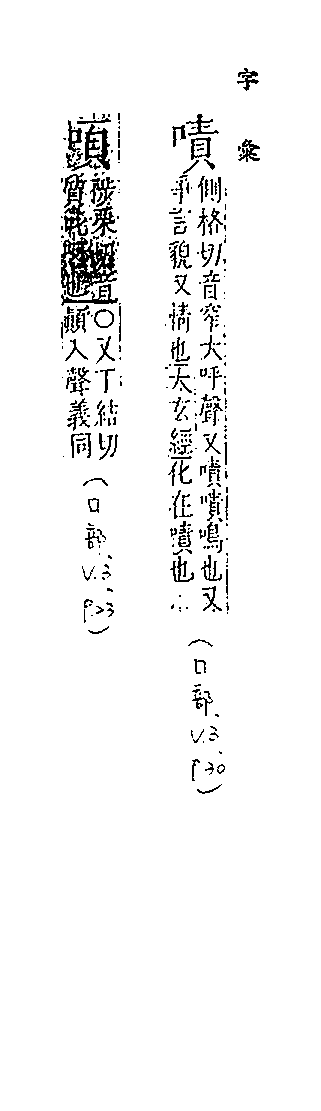 字彙
嘖
側格切音窄大呼聲又嘖嘖鳴也又
爭言貌又情也太玄經化在嘖也
(口部、V.3、P.30)
陟栗切音
○又丁結切
顛入聲義同
(口部、V.3、P.23)